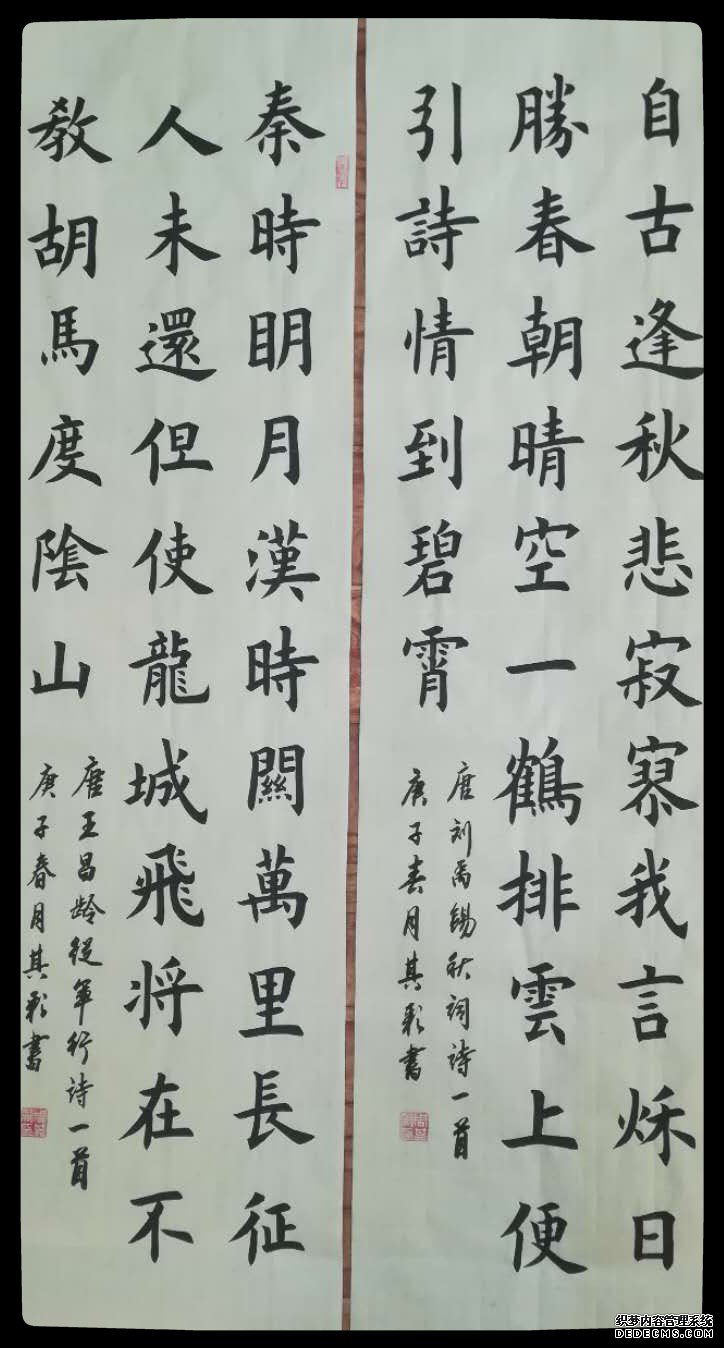 自古逢秋悲寂寥我言秌日
勝春朝晴空一鶴排雲上便
引詩情到碧霄
唐刘禹錫秋词诗一首
庚子春月其彩書
秦時明月漢時關萬里長征
人未還但使龍城飛将在不
教胡馬度陰山
唐王昌龄從军行诗一首
庚子春月其彩書
织梦内容管理系统
DEDECMS.COM